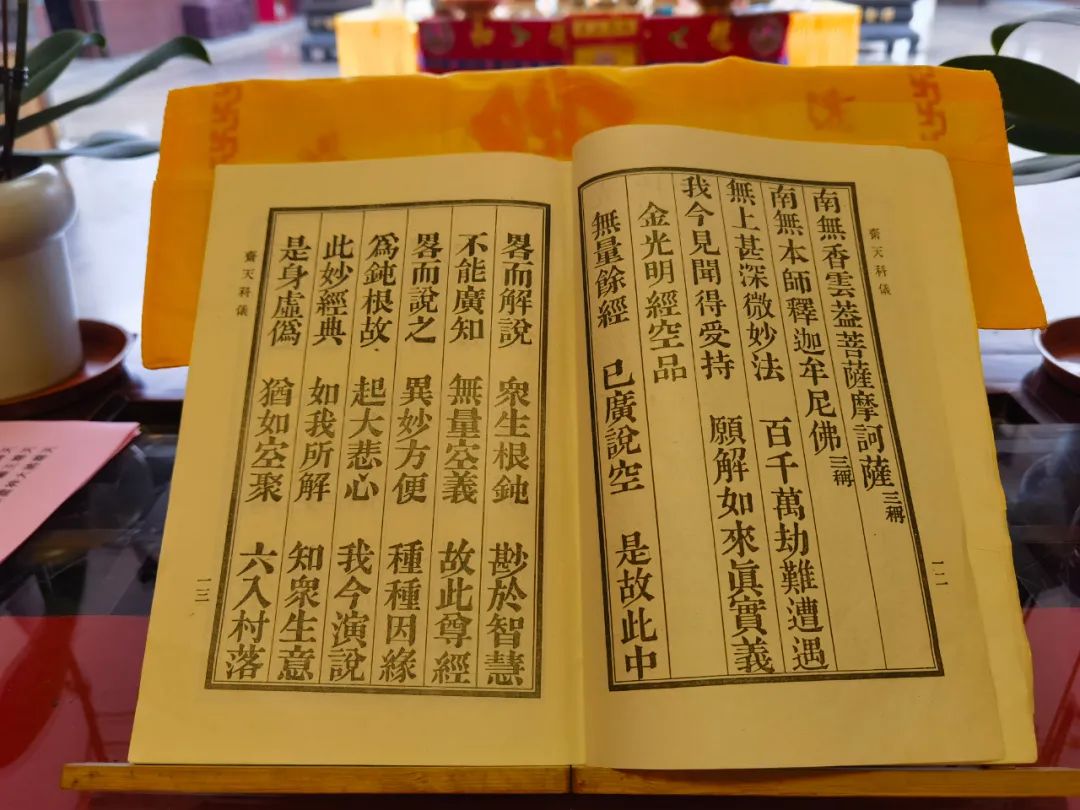 齋天科儀
一二
南無香雲葢菩薩摩訶薩三稱
南無本師釋迦牟尼佛三稱
無上甚深微妙法 百千萬劫難遭遇
我今見聞得受持 願解如來眞實義
金光明經空品
無量餘經 已廣說空 是故此中
畧而解說 衆生根鈍 尠於智慧
不能廣知 無量空義 故此尊經
畧而說之 異妙方便 種種因緣
爲鈍根故 起大悲心 我今演說
此妙經典 如我所解 知衆生意
是身虛僞 猶如空聚 六入村落
齋天科儀
一三